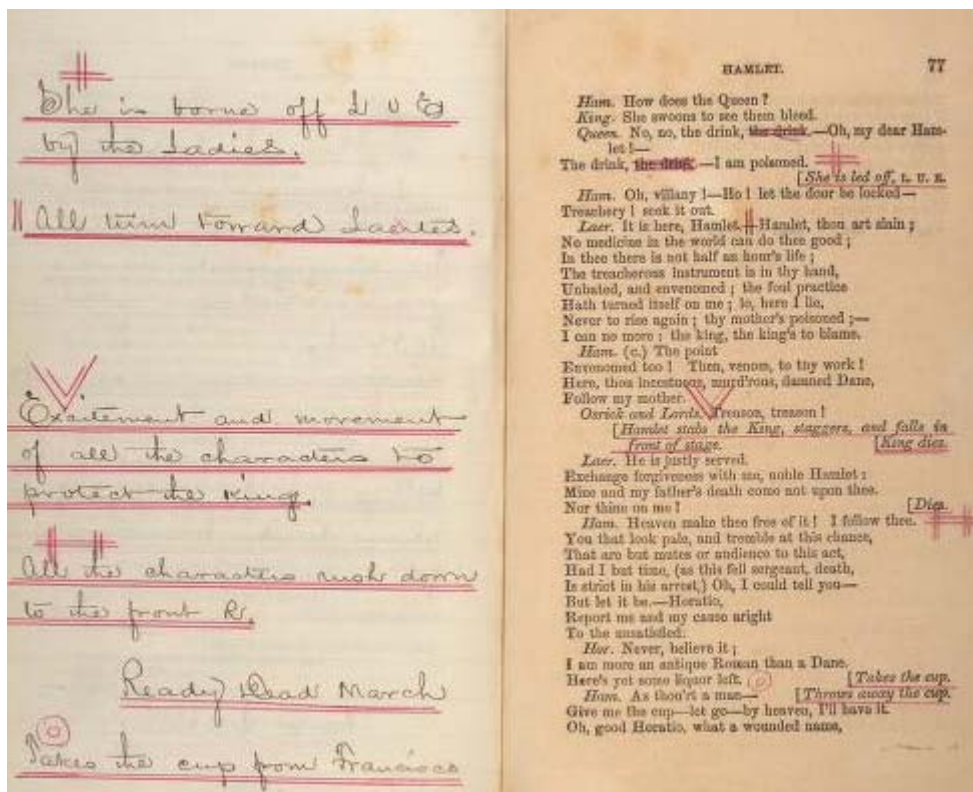 She is borne off L U E
by the Ladies.
All turn torward Laertes.
Excitement and movement
of all the characters to
protect the King.
All the characters rush down
to the front R.
Ready Dead March
Takes the cup from Francisco
HAMLET. 77
Ham. How does the Queen?
King. She swoons to see them bleed.
Queen. No, no, the drink, the drink.—Oh, my dear Ham-
let!—
The drink, the drink —I am poisoned.
[She is led off, L. U. E.
Ham. Oh, villany!—Ho! let the door be locked—
Treachery! seek it out.
Laer. It is here, Hamlet. Hamlet, thou art slain;
No medicine in the world can do thee good;
In thee there is not half an hour's life;
The treacherous instrument is in thy hand,
Unbated, and envenomed; the foul practice
Hath turned itself on me; lo, here I lie,
Never to rise again; thy mother's poisoned;—
I can no more: the king, the king's to blame.
Ham. (C.) The point
Envenomed too! Then, venom, to thy work!
Here, thou incestuous, murd'rous, damned Dane,
Follow my mother.
Osrick and Lords. Treason, treason!
[Hamlet stabs the King, staggers, and falls in
front of stage. [King dies.
Laer. He is justly served.
Exchange forgiveness with me, noble Hamlet:
Mine and my father's death come not upon thee.
Nor thine on me! [Dies.
Ham. Heaven make thee free of it! I follow thee.
You that look pale, and tremble at this chance,
That are but mutes or audience to this act,
Had I but time, (as this fell sergeant, death,
Is strict in his arrest,) Oh, I could tell you—
But let it be.—Horatio,
Report me and my cause aright
To the unsatisfied.
Hor. Never, believe it;
I am more an antique Roman than a Dane.
Here's yet some liquor left. [Takes the cup.
Ham. As thou'rt a man— [Throws away the cup.
Give me the cup—let go—by heaven, I'll have it.
Oh, good Horatio, what a wounded name,